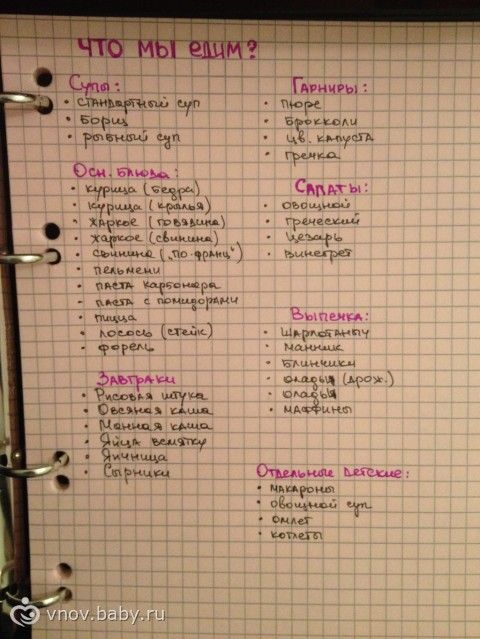 Что мы едим?
Супы:
• стандартный суп
• борщ
• рыбный суп
Осн. блюда:
• курица (бедра)
• курица (крылья)
• жаркое (говядина)
• жаркое (свинина)
• свинина („по-франц")
• пельмени
• паста карбонара
• паста с помидорами
• пицца
• лосось (стейк)
• форель
Завтраки
• Рисовая штука
• Овсяная каша
• Манная каша
• Яйца всмятку
• Яичница
• Сырники
Гарниры:
• пюре
• брокколи
• цв. капуста
• гречка
Салаты:
• овощной
• греческий
• цезарь
• винегрет
Выпечка:
• шарлотаныч
• манник
• блинчики
• оладьи (дрож.)
• оладьи
• маффины
Отдельные детские:
• макароны
• овощной суп
• омлет
• котлеты
vnov.baby.ru